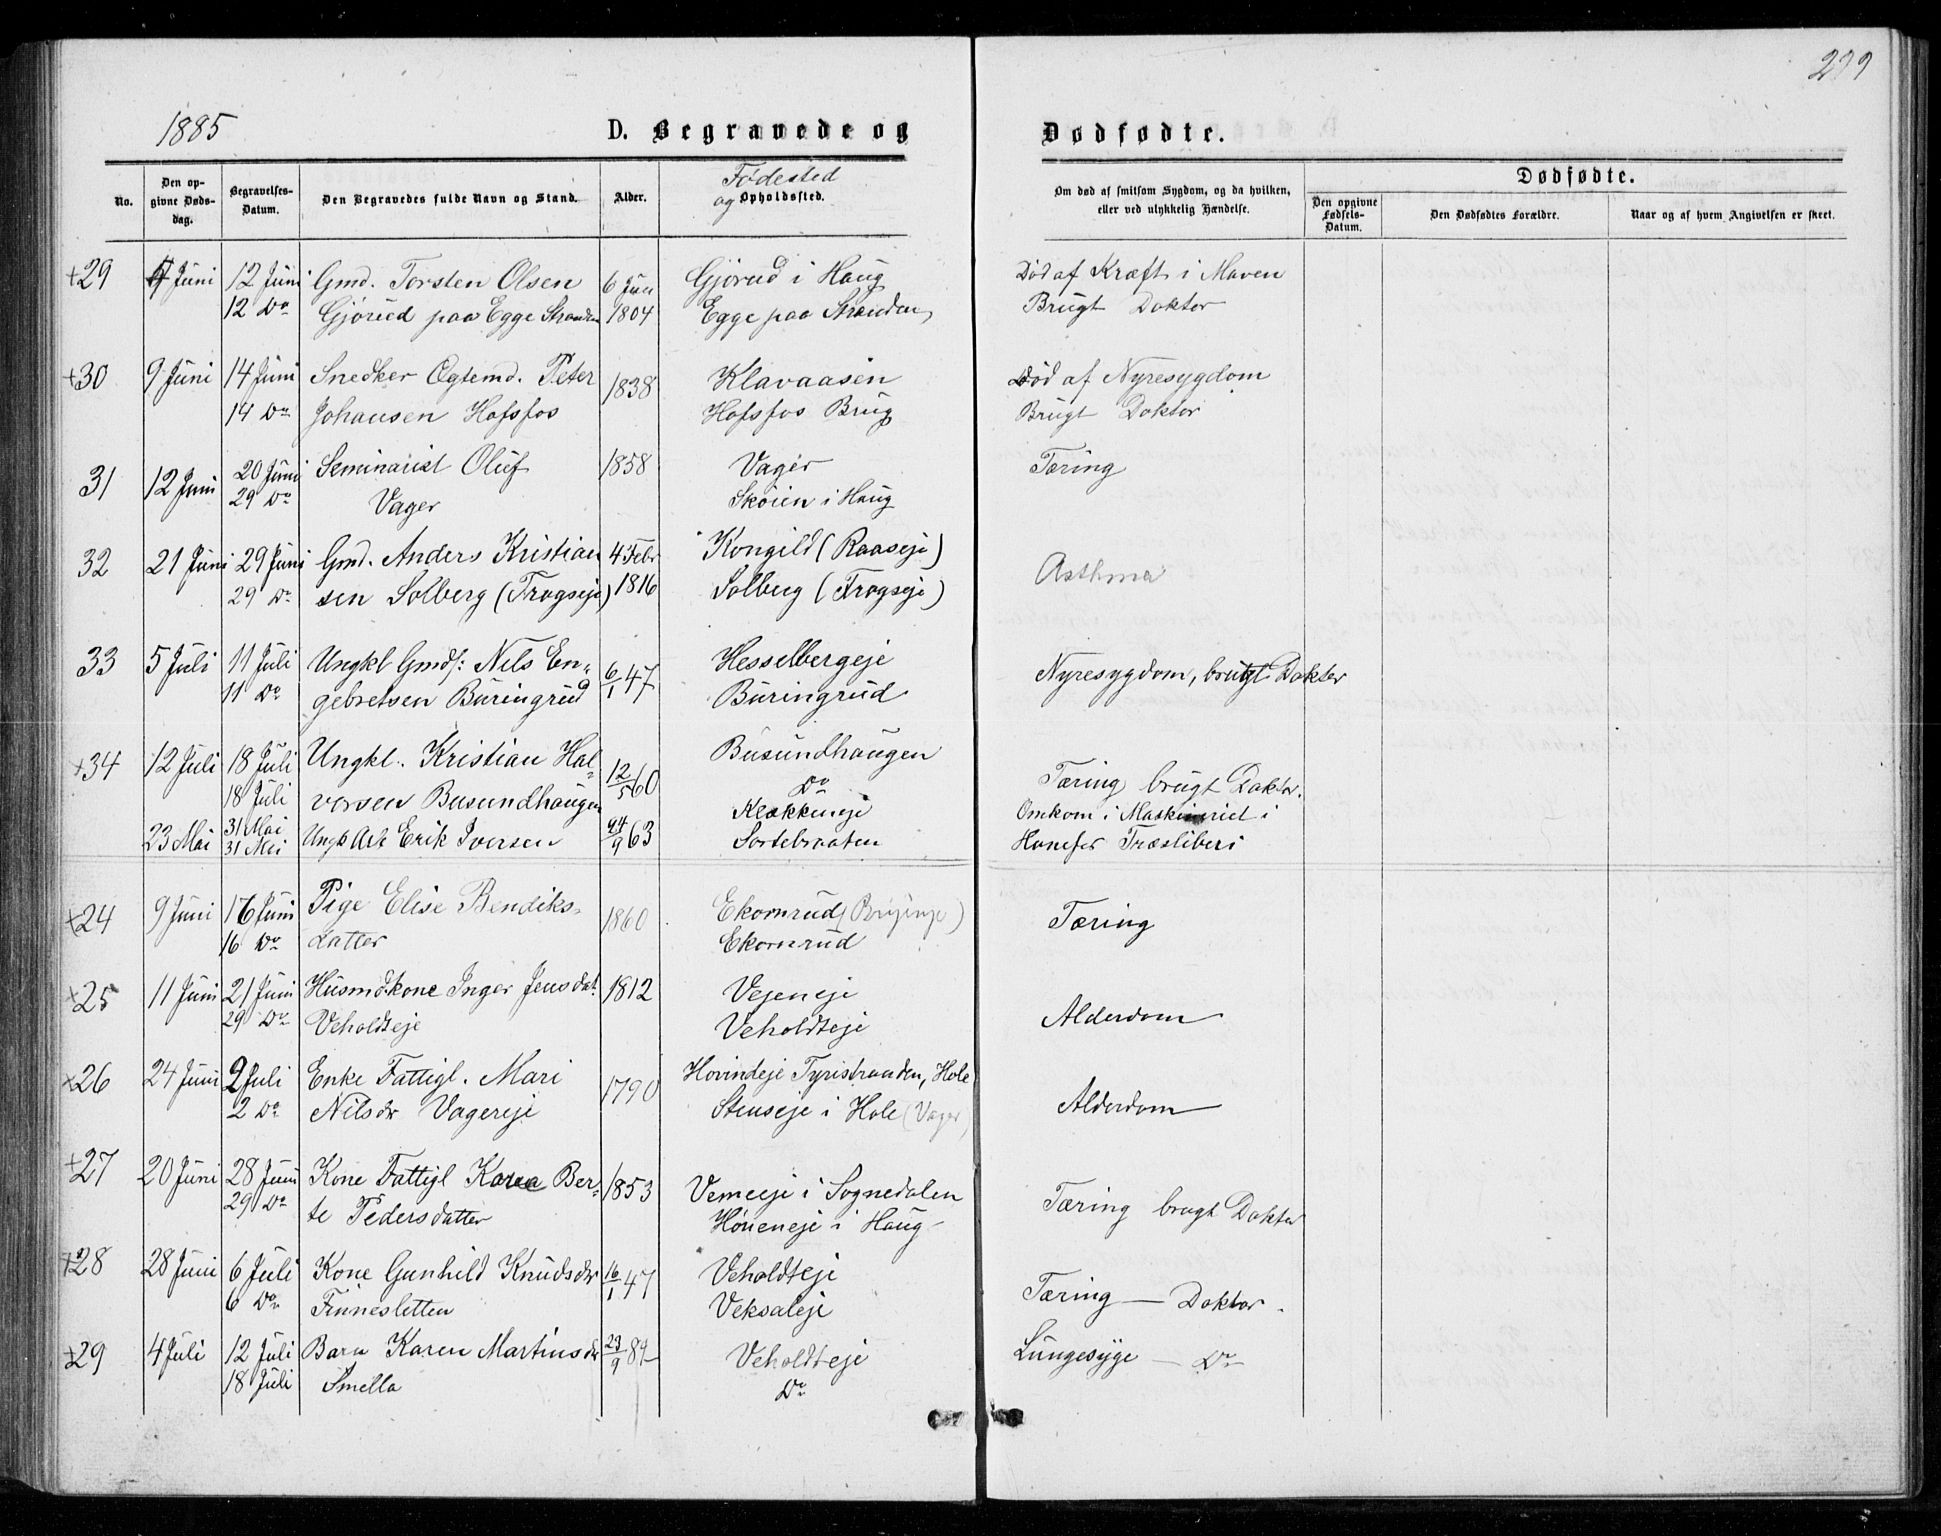 299
1885
D. Begravede og Dødfødte.
No.
Den opgivne Dødsdag.
Begravelses-Datum.
Den Begravedes fulde Navn og Stand.
Alder.
Fødested
og Opholdssted.
Om død af smitsom Sygdom, og da hvilken,
eller ved ulykkelig Hændelse.
Dødfødte.
Den opgivne Fødsels-Datum.
Den Dødfødtes Forældre.
Naar og af hvem Angivelsen er skeet.
+29 Juni 12 Juni Gmd. Torsten Olsen 6 Jan Gjørud i Haug Død af Kræft i Maven
12 Do Gjørud paa Egge Stranden 1804 Egge paa Stranden Brugt Doktor
+30 9 Juni 14 Juni Snedker Ogtemd. Peter 1838 Klavaasen Død af Nyresygdom
14 Do Johansen Hofsfos Hofsfos Brug Brugt Doktor
31 12 Juni 20 Juni Seminarist Oluf 1858 Vager Tæring
29 Do Vager Skøien i Haug
32 21 Juni 29 Juni Gmd. Anders Kristian 4 Febr Kongild (Raaseje) Asthma
29 Do sen Solberg (Frogseje) 1816 Solberg (Frogseje)
33 5 Juli 11 Juli Ungkl Gmdf: Nils En- 6/1 47 Hesselbergeje Nyresygdom, brugt Doktor
11 Do gebretsen Buringrud Buringrud
+34 12 Juli 18 Juli Ungkl. Kristian Hal- 12/5 60 Busundhaugen Tæring brugt Doktor.
18 Juli vorsen Busundhaugen Do
23 Mai 31 Mai Klækkeneje Omkom i Maskineriet i
31 Mai Ungk Arb Erik Iversen 24/9 63 Sortebraaten Hønefos Træsliberi
+24 9 Juni 16 Juni Pige Elise Bendiks- 1860 Ekornrud Tæring
16 Do datter Ekornrud
+25 11 Juni 21 Juni Husmdkone Inger Jensdat. 1812 Vejeneje Alderdom
29 Do Veholdteje Veholdteje
+26 24 Juni 2 Juli Enke Fattigl. Mari 1790 Hovindeje Tyristranden, Hole Alderdom
2 Do Nilsdr Vagereje Stenseje i Hole (Vager)
+27 20 Juni 28 Juni Kone Fattigl Karen Ber- 1853 Vemeeje i Sognedalen Tæring brugt Doktor
29 Do te Pedersdatter Høneneje i Haug
+28 28 Juni 6 Juli Kone Gunhild Knudsdr 16/1 47 Veholdteje Tæring — Doktor.
6 Do Finnesletten Veksaleje
+29 4 Juli 12 Juli Barn Karen Martinsdr 23/9 84 Veholdteje Lungesyge — Do
18 Juli Smella Do